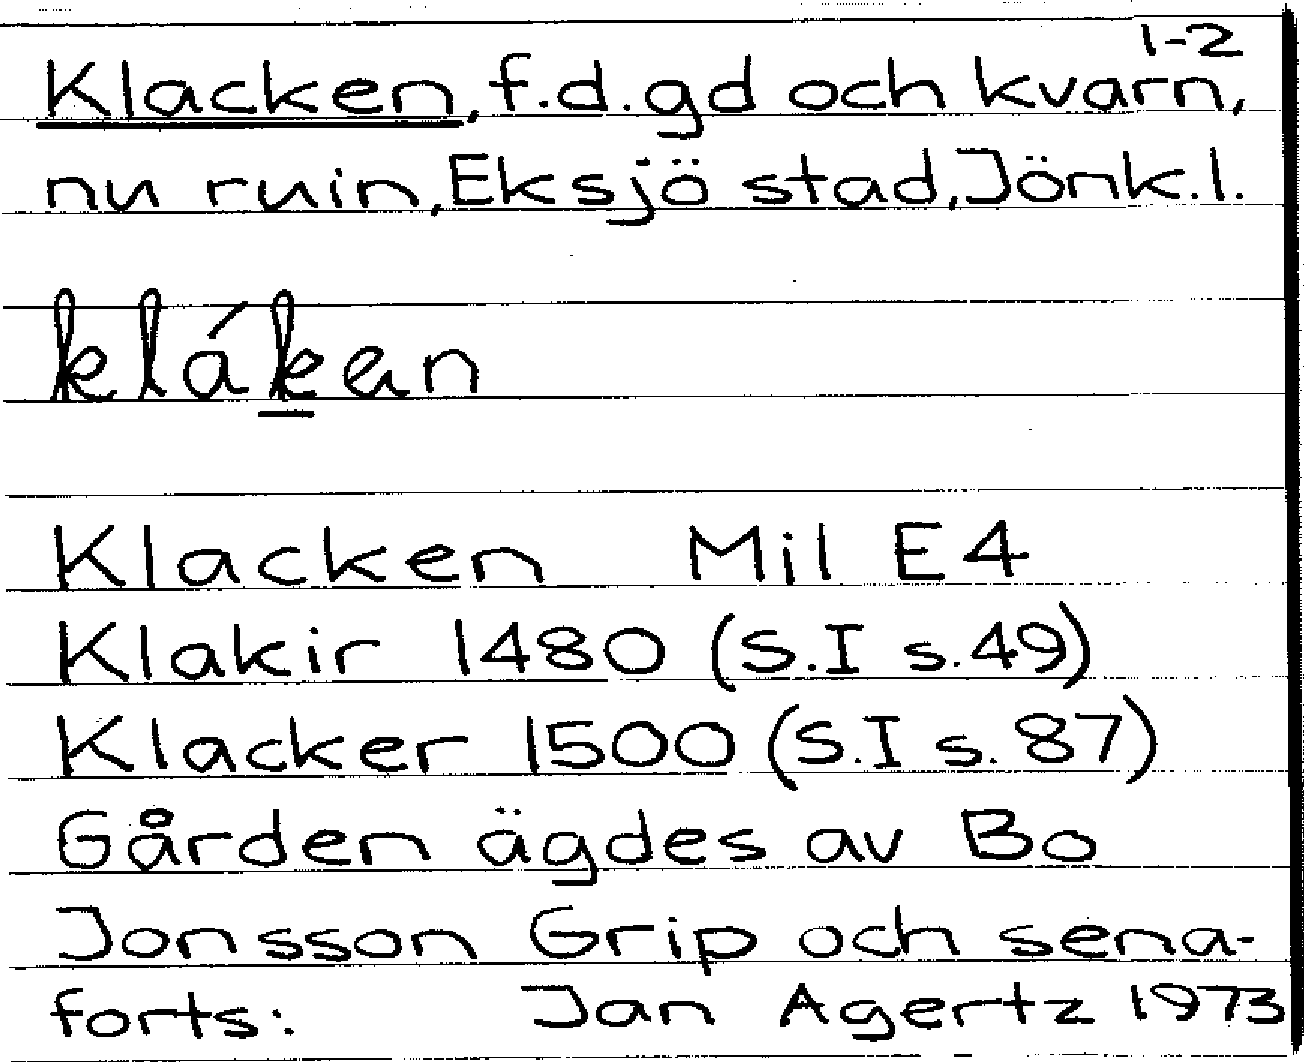 1-2
Klacken, f.d. gd och kvarn,
nu ruin, Eksjö stad, Jönk.l.
klákan
Klacken Mil E4
Klakir 1480 (S.I s.49)
Klacker 1500 (S.I s.87)
Gården ägdes av Bo
Jonsson Grip och sena-
forts: Jan Agertz 1973